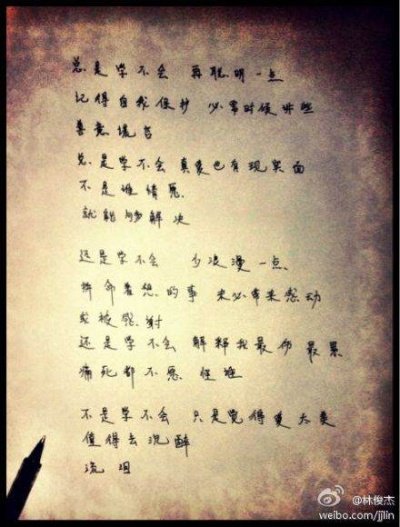 总是学不会 再聪明一点
记得自我保护 必要时候讲些
善意谎言
总是学不会 真爱也有现实面
不是谁情愿
就能够解决
还是学不会 少浪漫一点
拼命着想的事 未必带来感动
或被感谢
还是学不会 解释我最伤 最累
痛死都不愿 怪谁
不是学不会 只是觉得爱太美
值得去沉醉
流泪
@林俊杰
weibo.com/jjlin